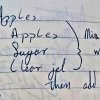 Apples
Apples
Sugar
Clear jel
then add